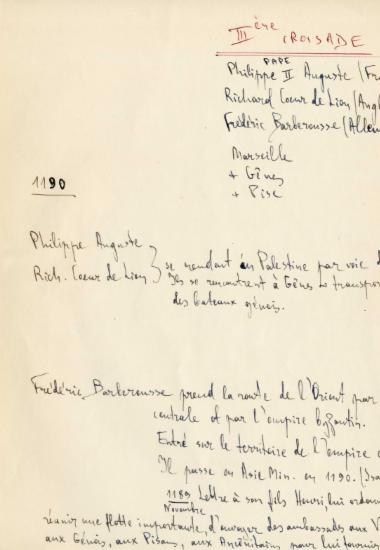 IIIème CROISADE
PAPE
Philippe II Auguste (Fr
Richard Coeur de Lion (Angl
Frédéric Barberousse (Allem
Marseille
+ Gênes
+ Pise
1190
Philippe Auguste
Rich. Coeur de Lion } se rendant en Palestine par voie d
Ils se rencontrent à Gênes transpor
des bateaux génois.
Frédéric Barberousse prend la route de l'Orient par
centrale et par l'empire byzantin.
Entré sur le territoire de l'empire
Il passe en Asie Min. en 1190. (Isa
1189 Lettre à son fils Henri, lui ordon
Novembre
réunir une flotte importante, d'envoyer des ambassades aux V
aux Génois, aux Pisans, aux Anconitains pour lui fournir